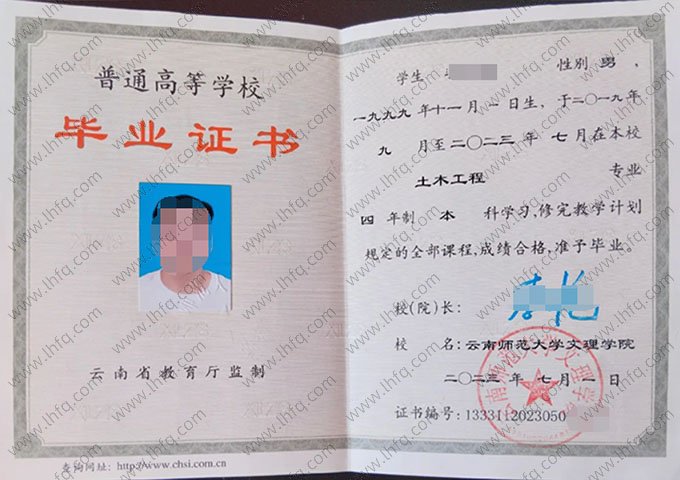 普通高等学校
毕业证书
云南省教育厅监制
查询网址: http://www.chsi.com.cn
学生 性别 男,
一九九九年十一月一日生,于二〇一九年
九月至二〇二三年七月在本校
土木工程 专业
四年制 本 科学习,修完教学计划
规定的全部课程,成绩合格,准予毕业。
校(院)长:
校名:云南师范大学文理学院
二〇二三年七月一日
证书编号:1333112023050
www.lhfq.com